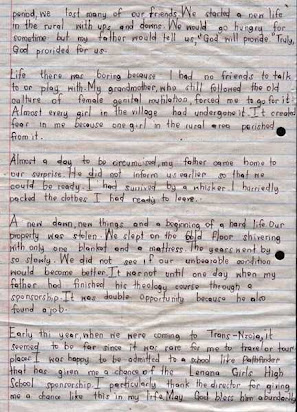 period, we lost many of our friends. We started a new life
in the rural with ups and downs. We would go hungry for
sometime but my father would tell us, "God will provide." Truly,
God provided for us.
Life there was boring because I had no friends to talk
to or play with. My grandmother, who still followed the old
culture of female genital mutilation, forced me to go for it.
Almost every girl in the village had undergone it. It created
fear in me because one girl in the rural area perished
from it.
Almost a day to be circumcised, my father came home to
our surprise. He did not inform us earlier so that we
could be ready. I had survived by a whisker. I hurriedly
packed the clothes I had ready to leave.
A new dawn, new things and a beginning of a hard life. Our
property was stolen. We slept on the cold floor shivering
with only one blanket and a mattress. The years went by
so slowly. We did not see if our unbearable condition
would become better. It was not until one day when my
father had finished his theology course through a
sponsorship. It was double opportunity because he also
found a job.
Early this year, when we were coming to Trans-Nzoia, it
seemed to be far since it was rare for me to travel or tour
places. I was happy to be admitted to a school like Pathfinder
that has given me a chance of the Lenana Girls High
School sponsorship. I particularly thank the director for giving
me a chance like this in my life. May God bless him abundantly